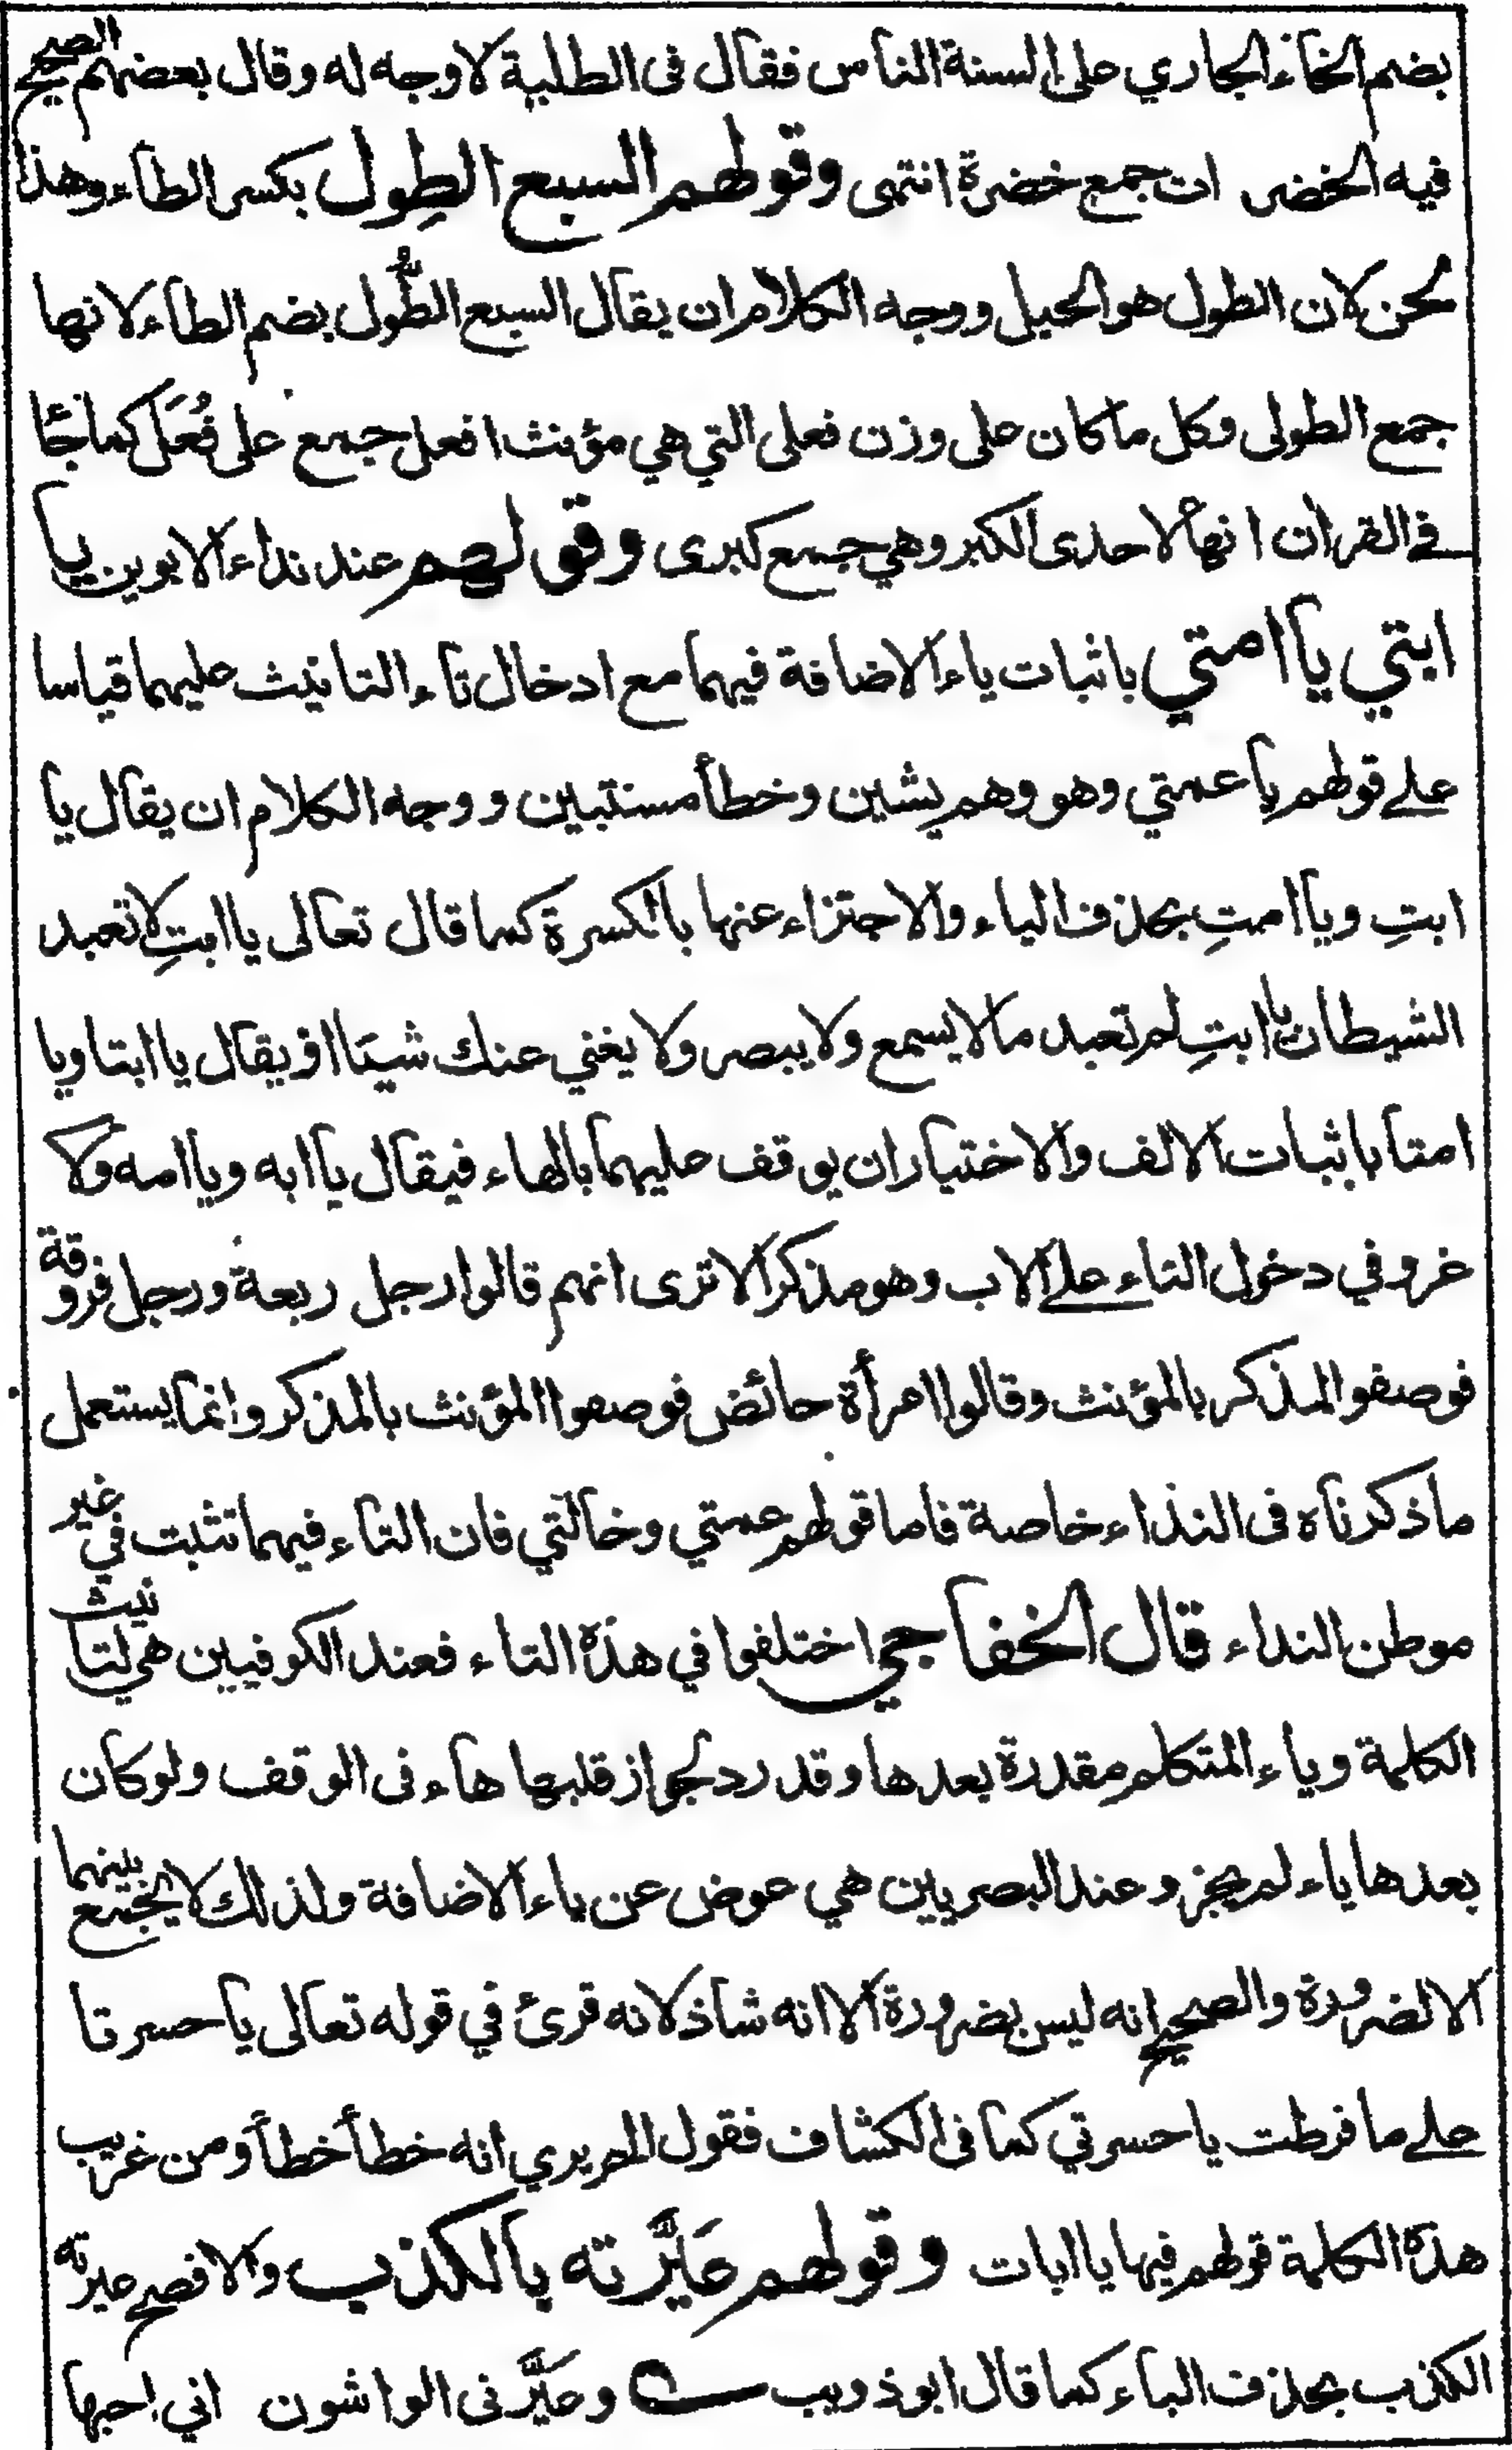 بضم الخاء الجاري على السنة الناس فقال في الطلبة لا وجه له وقال بعضهم الصحيح
فيه الخضر ات جمع خضرة انتهى وقولهم السبع الطِول بكسر الطاء وهذا
لحن لان الطول هو الحبل ووجه الكلام ان يقال السبع الطُّول بضم الطاء لانها
جمع الطولى وكل ما كان على وزن فعلى التي هي مؤنث افعل جمع على فُعَل كما جٓا
في القران انها لاحدى الكبر وهي جمع كبرى وقولهم عند نداء الابوين يا
ابتي يا امتي باثبات ياء الاضافة فيهما مع ادخال تاء التانيث عليهما قياسا
على قولهم يا عمتي وهو وهم يشين وخطأ مستبين ووجه الكلام ان يقال يا
ابتِ ويا امتِ بحذف الياء والاجتزاء عنها بالكسرة كما قال تعالى يا ابتِ لا تعبد
الشيطان يا ابتِ لم تعبد ما لا يسمع ولا يبصر ولا يغني عنك شيئا او يقال يا ابتا ويا
امتا باثبات الالف والاختيار ان يوقف عليهما بالهاء فيقال يا ابه ويا امه ولا
غرو في دخول التاء على الاب وهو مذكر الا ترى انهم قالوا رجل ربعة ورجل فروقة
فوصفوا المذكر بالمؤنث وقالوا امرأة حائض فوصفوا المؤنث بالمذكر وانما يستعمل
ما ذكرناه في النذاء خاصة فاما قولهم عمتي وخالتي فان التاء فيهما تثبت في غير
موطن النداء قال الخفاجي اختلفوا في هذه التاء فعند الكوفيين هي لتانيث
الكلمة وياء المتكلم مقدرة بعدها وقد رد لجواز قلبها هاء في الوقف ولو كان
بعدها ياء لم يجز وعند البصريين هي عوض عن ياء الاضافة ولذلك لا يجتمع بينهما
الا لضرورة والصحيح انه ليس بضرورة الا انه شاذ لانه قرئ في قوله تعالى يا حسرتا
على ما فرطت يا حسرتي كما في الكشاف فقول الحريري انه خطأ خطأ ومن غريب
هذه الكلمة قولهم فيها يا ابات وقولهم عَيَّرته بالكذب والافصح عيرته
الكذب بحذف الباء كما قال ابو ذويب وعَيَّرني الواشون اني احبها